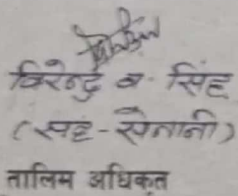 विरेन्द्र ब. सिंह
(सह-सेनानी)
तालिम अधिकृत